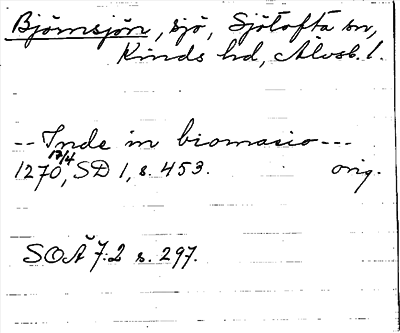 Björnsjön, sjö, Sjötofta sn,
Kinds hd, Älvsb. l.
-- Inde in biornasio ---
1270 17/4, SD 1, s. 453. orig.
SOÄ 7:2 s. 297.